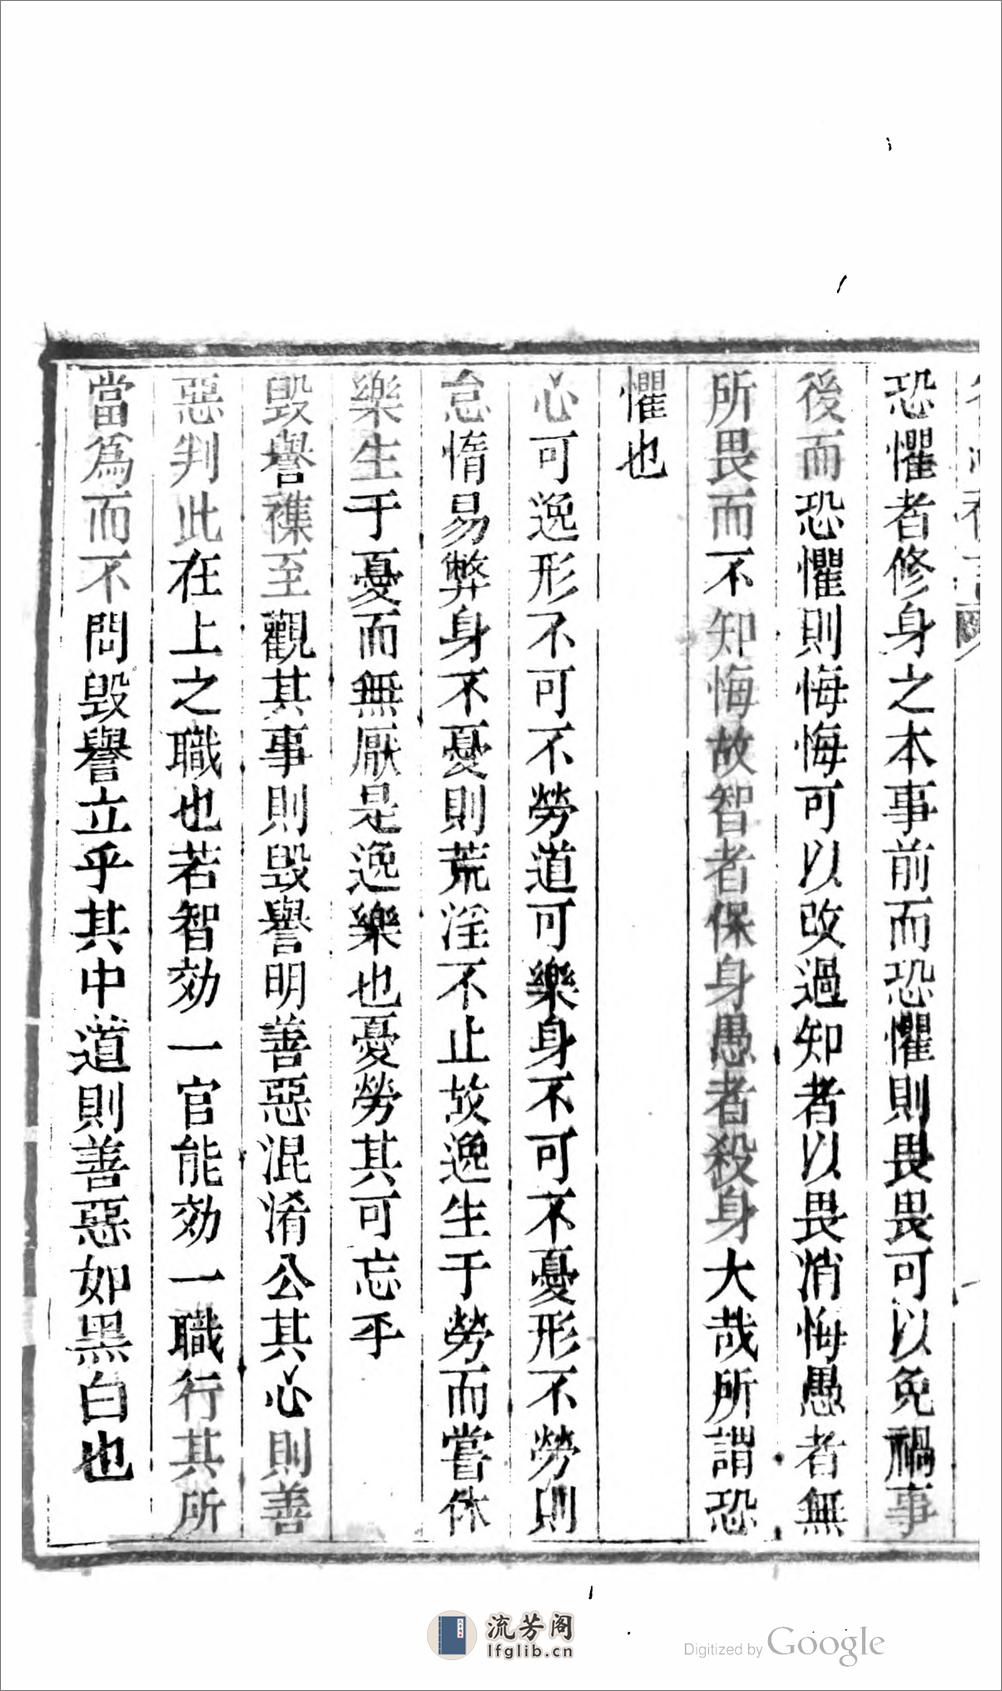 恐懼者修身之本事前而恐懼則畏畏可以免禍事
後而恐懼則悔悔可以改過知者以畏消悔愚者無
所畏而不知悔故智者保身愚者殺身大哉所謂恐
懼也
心可逸形不可不勞道可樂身不可不憂形不勞則
怠惰易弊身不憂則荒淫不止故逸生于勞而嘗休
樂生于憂而無厭是逸樂也憂勞其可忘乎
毀譽襍至觀其事則毀譽明善惡混淆公其心則善
惡判此在上之職也若智効一官能効一職行其所
當爲而不問毀譽立乎其中道則善惡如黑白也
流芳阁
lfglib.cn
Digitized by Google